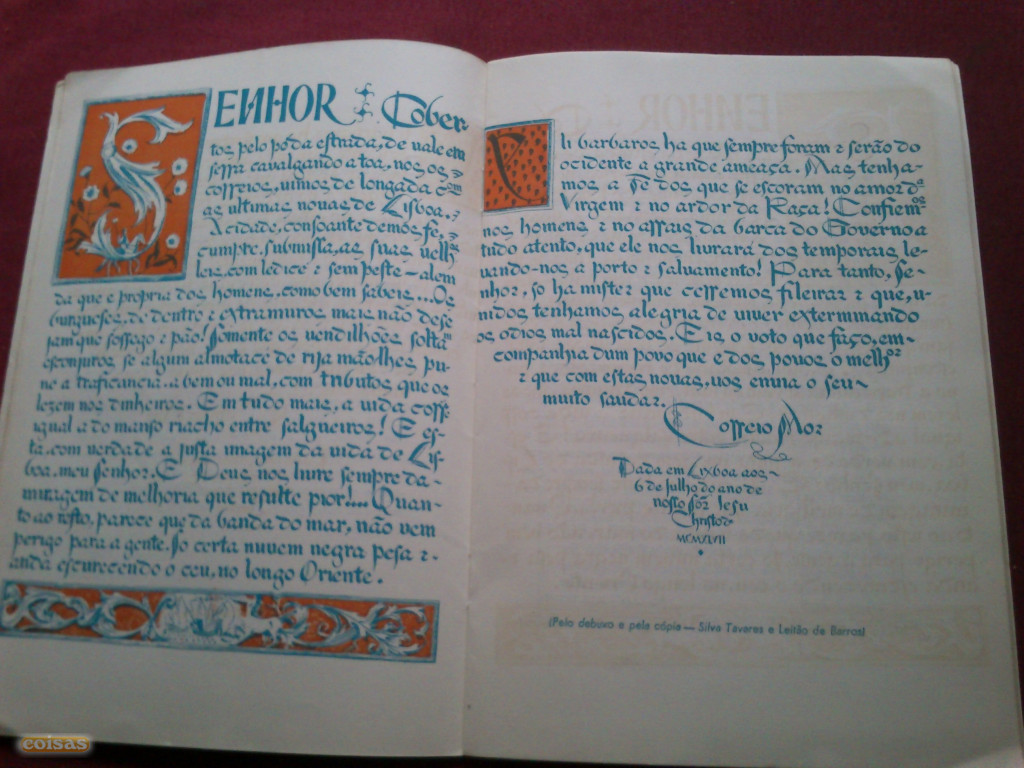 SENHOR : Cober-
tos pelo pó da estrada, de vale em
serra cavalgando a toa, nos os
cosseios, vimos de longada com
as ultimas novas de Lisboa.
A cidade, consoante demos fe,
cumpre, submissa, as suas velhas
leis, com ledice e sem peste — alem
da que e propria dos homens, como bem sabeis... Os
burgueses, de dentro e extramuros mais não dese
jam que sossego e pão! Somente os vendilhões soltam
esconjuros se algum almotace de rija mão lhes pu-
ne a traficancia, a bem ou mal, com tributos que os
lezem nos dinheiros. Em tudo mais, a vida cosse
igual a do manso riacho entre salgueiros! E es-
ta, com verdade a justa imagem da vida de Lis-
boa, meu Senhor. E Deus nos livre sempre da-
miragem de melhoria que resulte pior!... Quan-
to ao resto, parece que da banda do mar, não vem
perigo para a gente. So certa nuvem negra pesa e-
anda escurecendo o ceu, no longo Oriente.
li barbaros ha que sempre foram e serão do
ocidente a grande ameaça. Mas tenha-
mos a Fé dos que se escoram no amor da
Virgem e no ardor da Raça! Confiem
nos homens e no assais da barca do Governo a
tudo atento, que ele nos livrará dos temporais le-
vando-nos a porto e salvamento! Para tanto, Se-
nhor, so ha mister que cessemos fileiras e que, u-
nidos tenhamos alegria de viver exterminando
os odios mal nascidos. E is o voto que faço, em-
companhia dum povo que e dos povos o melhor
e que com estas novas, vos envia o seu
muito saudar.
Cosseio Mor
Dada em Lixboa aos
6 de julho do ano de
nosso Sor Iesu
Christo
MCMXLVII
(Pelo debuxo e pela cópia — Silva Tavares e Leitão de Barros)
coisas